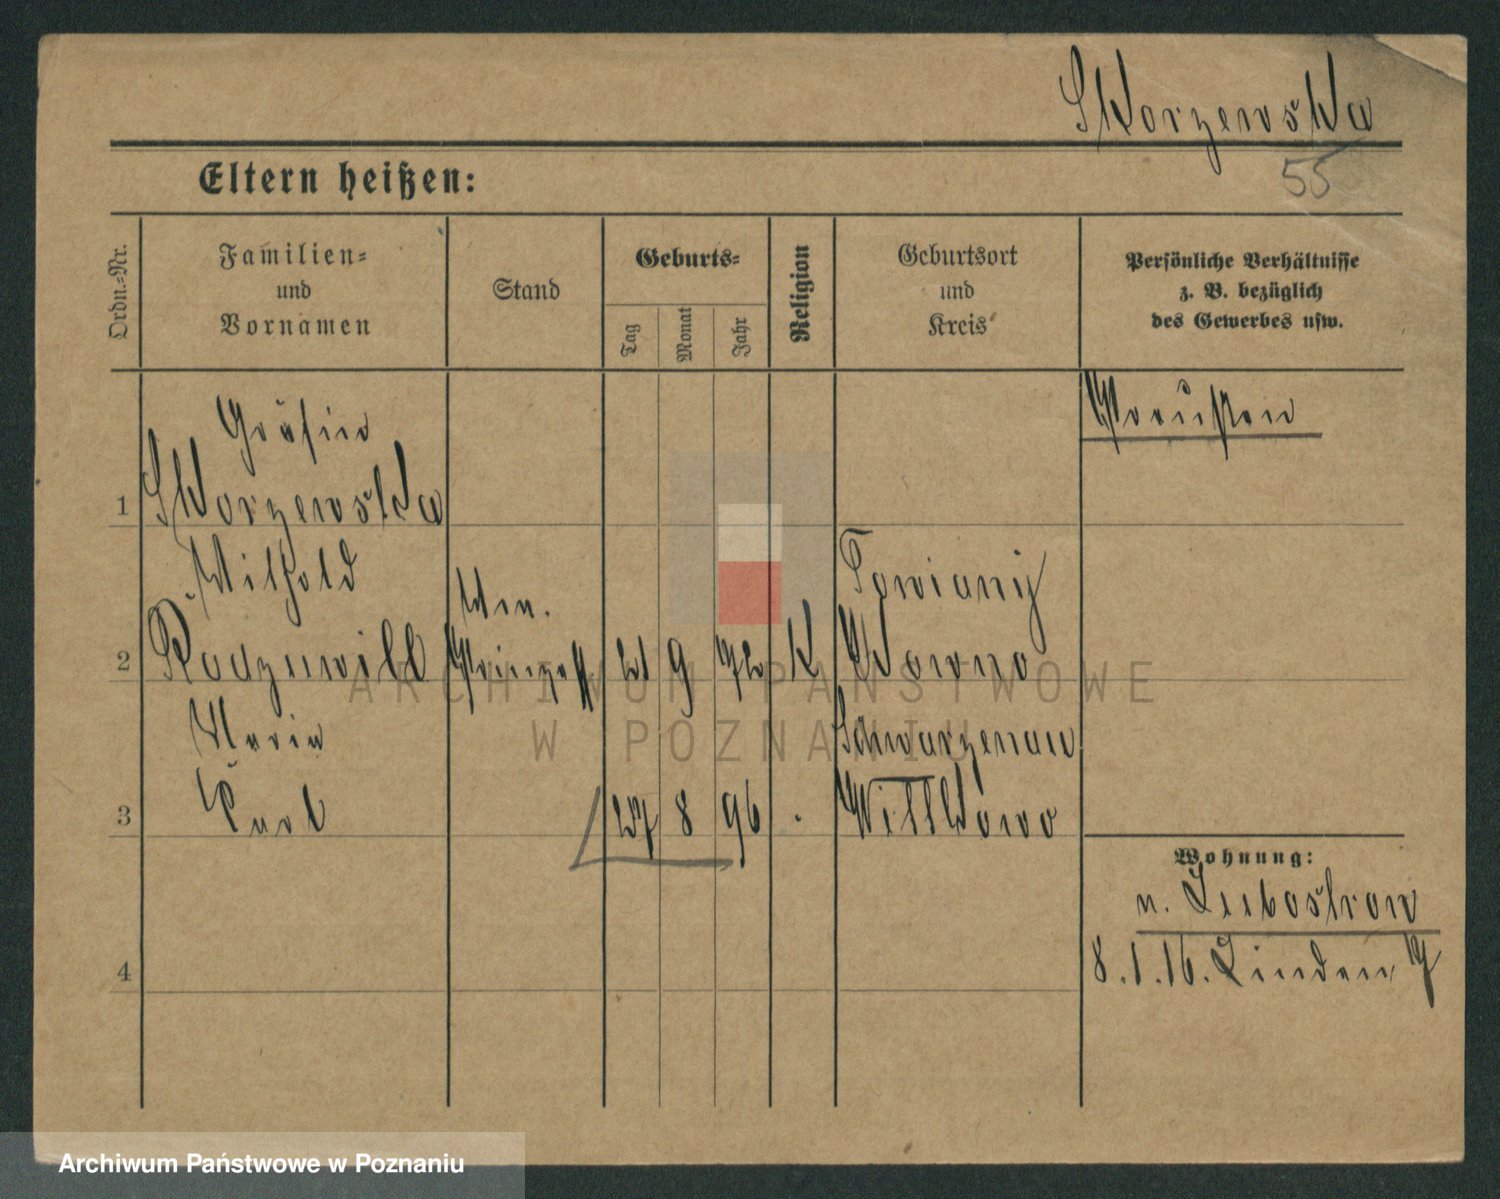 Skorzewska
55
Eltern heißen:
Ordn.-Nr.
Familien-
und
Vornamen
Stand
Geburts-
Tag
Monat
Jahr
Religion
Geburtsort
und
Kreis
Persönliche Verhältnisse
z. B. bezüglich
des Gewerbes usw.
Gräfin
Preußen
1 Skorzewska
Withold
Towiany
Ww.
2 Radziwill Prinzess 9 K Kowno
Maria Schwarzenau
3 Carl 27 8 96 Wittkowo
Wohnung:
n. Lubostron
4 8.1.16. Linden
ARCHIWUM PAŃSTWOWE
W POZNANIU
Archiwum Państwowe w Poznaniu